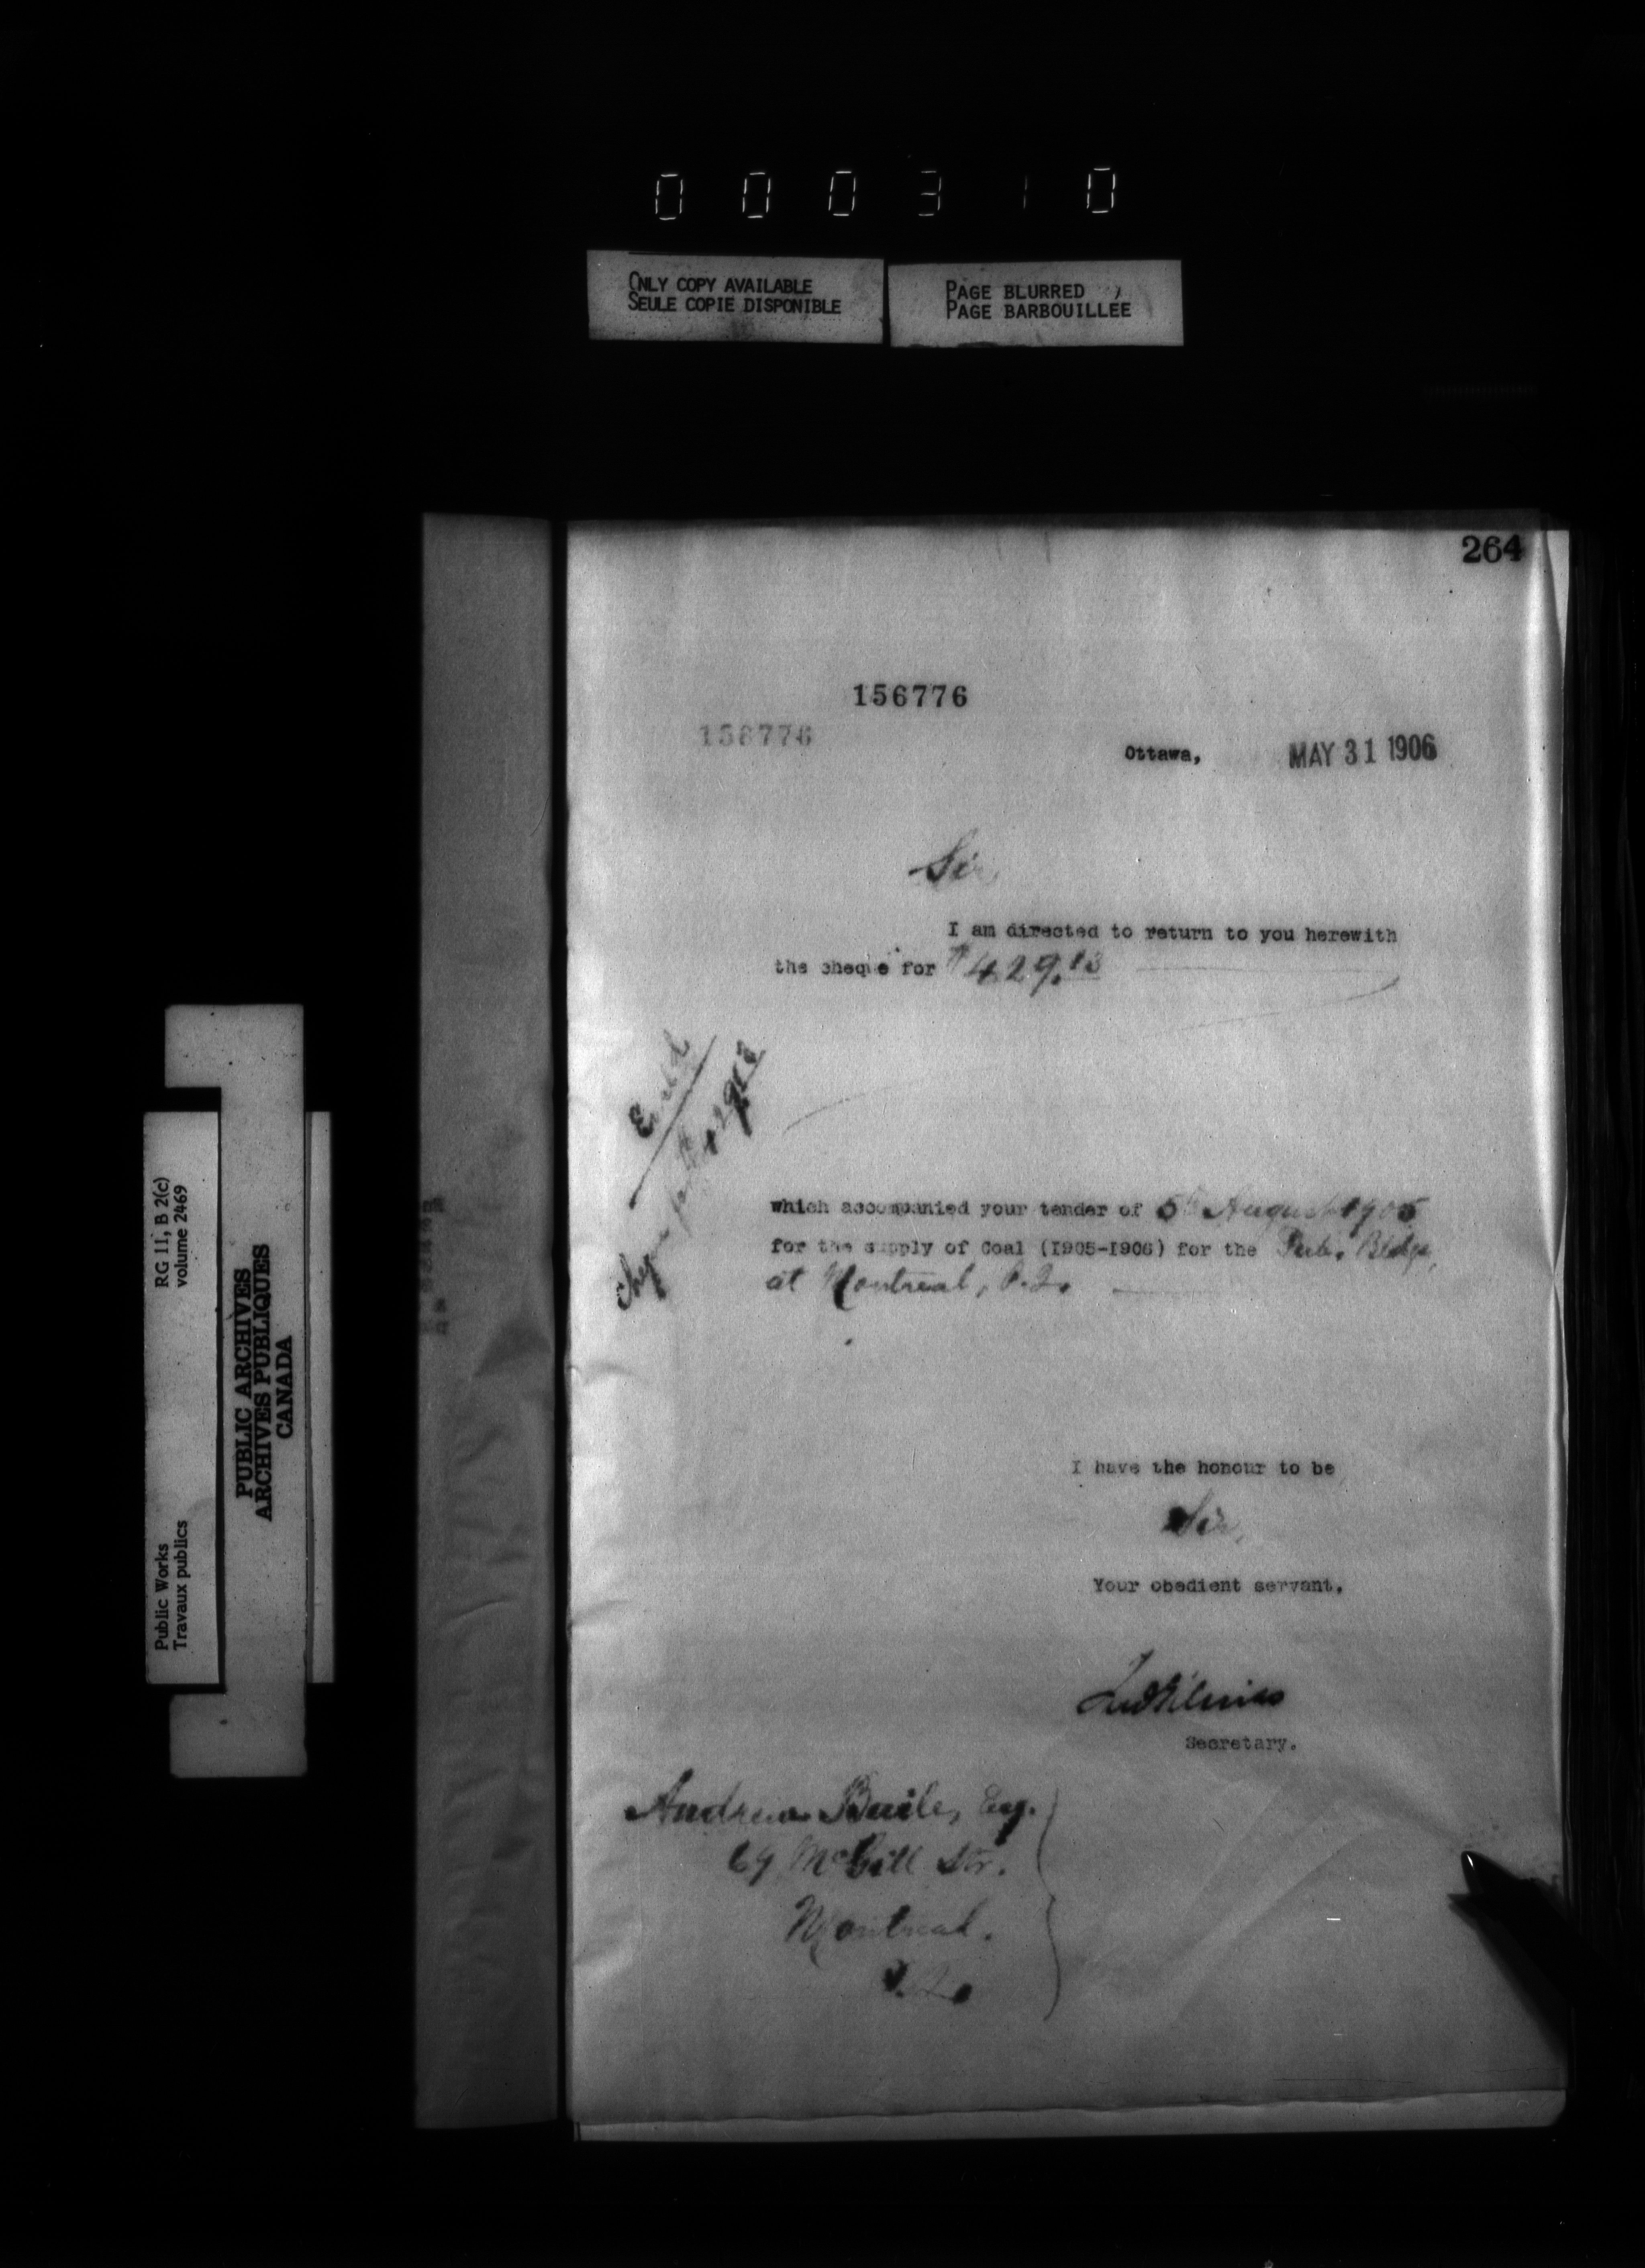 000310
ONLY COPY AVAILABLE
SEULE COPIE DISPONIBLE
PAGE BLURRED
PAGE BARBOUILLEE
264
156776
156776
Ottawa, MAY 31 1906
Sir
I am directed to return to you herewith
the cheque for $429.13
Encl'd
Cheque for $429.13
which accompanied your tender of 5th August 1905
for the supply of Coal (1905-1906) for the Pub. Bldgs,
at Montreal, P.Q.
I have the honour to be
Sir,
Your obedient servant,
Secretary.
Andrew Baile, Esq.
69 McGill Str.
Montreal.
P.Q.
RG 11, B 2(c)
volume 2469
PUBLIC ARCHIVES
ARCHIVES PUBLIQUES
CANADA
Public Works
Travaux publics